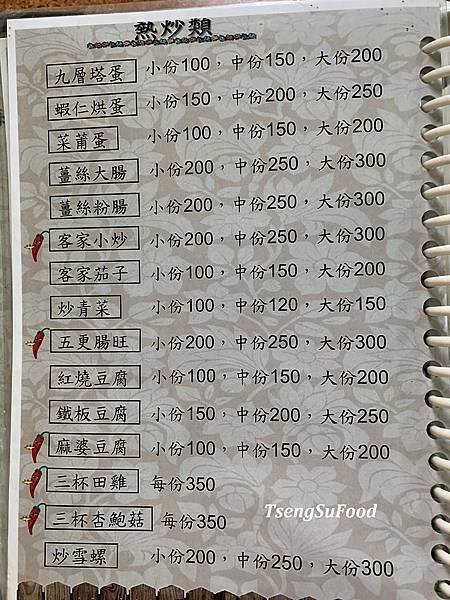 熱炒類
九層塔蛋 小份100，中份150，大份200
蝦仁烘蛋 小份150，中份200，大份250
菜莆蛋 小份100，中份150，大份200
薑絲大腸 小份200，中份250，大份300
薑絲粉腸 小份200，中份250，大份300
客家小炒 小份200，中份250，大份300
客家茄子 小份100，中份150，大份200
炒青菜 小份100，中份120，大份150
五更腸旺 小份200，中份250，大份300
紅燒豆腐 小份100，中份150，大份200
鐵板豆腐 小份150，中份200，大份250
麻婆豆腐 小份100，中份150，大份200
三杯田雞 每份350
三杯杏鮑菇 每份350
TsengSuFood
炒雪螺 小份200，中份250，大份300